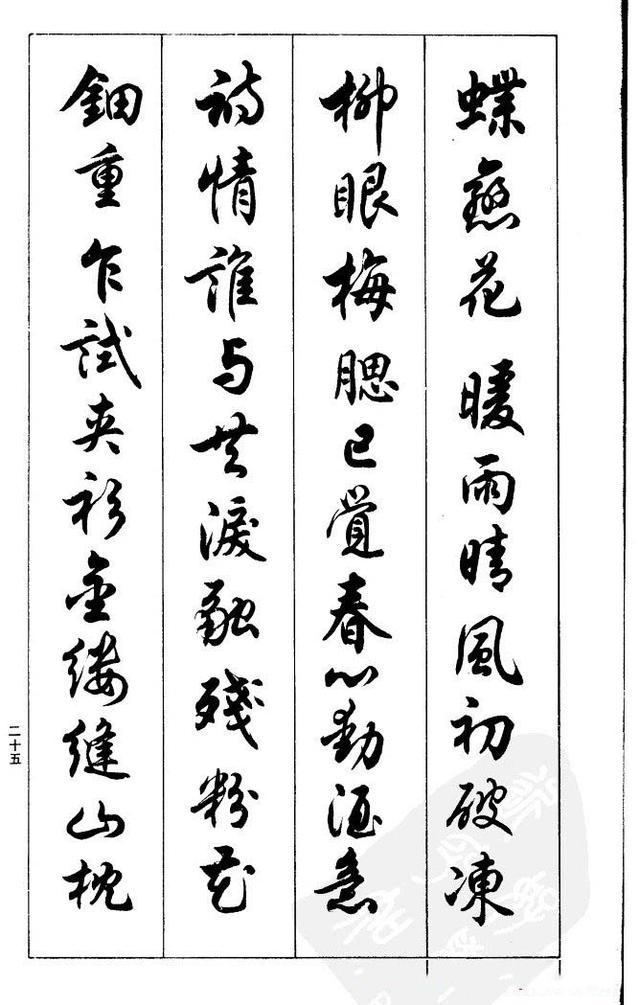 蝶戀花 暖雨晴風初破凍
柳眼梅腮已覺春心動酒意
詩情誰与共淚融殘粉花
鈿重乍試夾衫金縷縫山枕
二十五